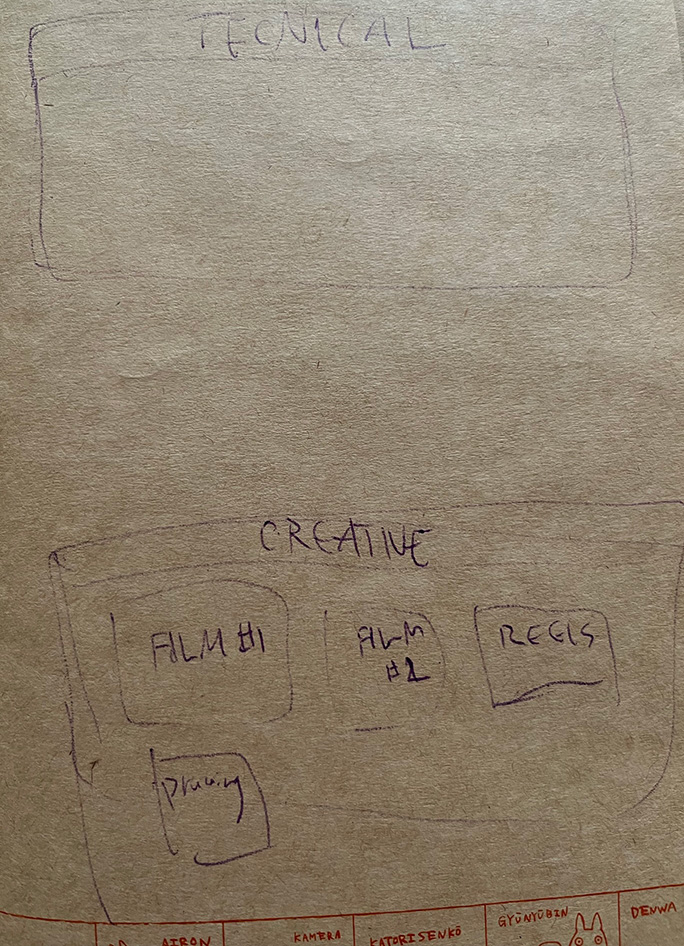 TECNICAL
CREATIVE
FILM #1
FILM
#2
REELS
AIRON
KAMERA
KATORISENKŌ
GYŪNYŪBIN
DENWA